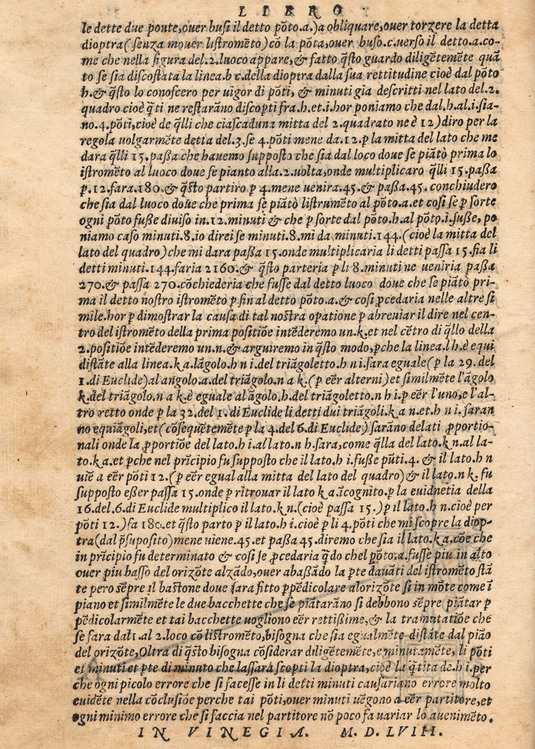 LIBRO
le dette due ponte, ouer busi il detto põto. a.) a obliquare, ouer torzere la detta
dioptra (senza mouer listromẽto) cõ la põta, ouer buso. c. uerso il detto. a. co-
me che nella figura del. 2. luoco appare, & fatto q̃sto guardo diligẽtemẽte quã
to se sia discostata la linea. h c. della dioptra dalla sua rettitudine cioè dal põto
h. & q̃sto lo conoscero per uigor di põti, & minuti gia descritti nel lato del. 2.
quadro cioè q̃ti ne restarãno discopti fra. h. et. i. hor poniamo che dal. h. al. i. sia-
no. 4. põti, cioè de q̃lli che ciascaduna mitta del 2. quadrato ne è 12) diro per la
regola uolgarmẽte detta del. 3. se 4. põti mene da. 12. p la mitta del lato che me
dara q̃lli 15. paßa che hauemo supposto che sia dal loco doue se piãtò prima lo
istromẽto al luoco doue se pianto alla. 2. uolta, onde multiplicaro q̃lli 15. paßa
p. 12. sara. 180. & q̃sto partiro p 4. mene uenira. 45. & paßa. 45. conchiudero
che sia dal luoco doue che prima se piãtò listrumẽto al põto. a. et cosi se p sorte
ogni põto fuße diuiso in. 12. minuti & che p sorte dal põto. h. al põto. i. fuße, po
niamo caso minuti. 8. io direi se minuti. 8. mi da minuti. 144. (cioè la mitta del
lato del quadro) che mi dara paßa 15. onde multiplicaria li detti passa 15. fia li
detti minuti. 144. faria 2160. & q̃sto parteria p li 8. minuti ne ueniria paßa
270. & passa 270. cõchiederia che fusse dal detto luoco doue che se piãtò pri-
ma il detto nostro istromẽto p fin al detto põto. a. & cosi p̱cedaria nelle altre si
mile. hor p dimostrar la causa di tal nostra opatione p abreuiar il dire nel cen-
tro del istromẽto della prima positiõe intẽderemo un. k. et nel cẽtro di q̃llo della
2. positiõe intẽderemo un. n. & arguiremo in q̃sto modo, p̱che la linea. l h. è equi
distãte alla linea. k a. lãgolo. h n i. del triãgoletto. h n i. sara eguale (p la 29. del
1. di Euclide) al angolo. a. del triãgolo. n a k. (p eẽr alterni) et similmẽte l'ãgolo
k. del triãgolo. n a k. è eguale al ãgolo. h. del triãgoletto. n h i. p eẽr l'uno, e l'al-
tro retto onde p la 32. del 1. di Euclide li detti dui triãgoli. k a n. et. h n i. saran
no equiãgoli, et (cõseq̃uẽtemẽte p la 4. del 6. di Euclide) sarãno delati p̱portio-
nali onde la p̱portiõe del lato. h i. al lato. n h. sara, come q̃lla del lato. k n. al la-
to. k a. et p̱che nel prĩcipio fu supposto che il lato. h i. fuße pũti. 4. & il lato. h n
uiẽ a eẽr põti 12. (p eẽr egual alla mitta del lato del quadro) & il lato. n k. fu
supposto eßer paßa 15. onde p ritrouar il lato k a ĩcognito. p la euidnetia della
16. del. 6. di Euclide multiplico il lato. k n. (cioè passa 15.) p il lato. h n. cioè per
põti 12.) fa 180. et q̃sto parto p il lato. h i. cioè p li 4. põti che mi scopre la diop-
tra (dal p̱suposito) mene uiene. 45. et paßa 45. diremo che sia il lato. k a. cõe che
in prĩcipio fu determinato & cosi se p̱cedaria q̃do chel põto. a. fusse piu in alto
ouer piu basso del orizõte alzãdo, ouer abaßãdo la pte dauãti del istromẽto stã
te pero sẽpre il bastone doue sara fitto p̱pẽdicolare alorizõte si in mõte come ĩ
piano et similmẽte le due bacchette che se piãtarãno si debbono sẽpre piãtar p
pẽdicolarmẽte et tai bacchette uogliono eẽr rettißime, & la tramutatiõe che
se fara dal 1. al 2. loco cõ listromẽto, bisogna che sia egualmẽte distãte dal pião
del orizõte, Oltra di q̃sto bisogna cõsiderar diligẽtemẽte, e minutamẽte, li põti
et minuti et pte di minuto che lassarà scopti la dioptra, cioè la q̃tita de. h i. per
che ogni picolo errore che si facesse in li detti minuti causariano errore molto
euidẽte nella cõclusiõe perche tai põti, ouer minuti uẽgono a eẽr partitore, et
ogni minimo errore che si faccia nel partitore nõ poco fa uariar lo auenimẽto.
IN VINEGIA. M. D. LVIII.